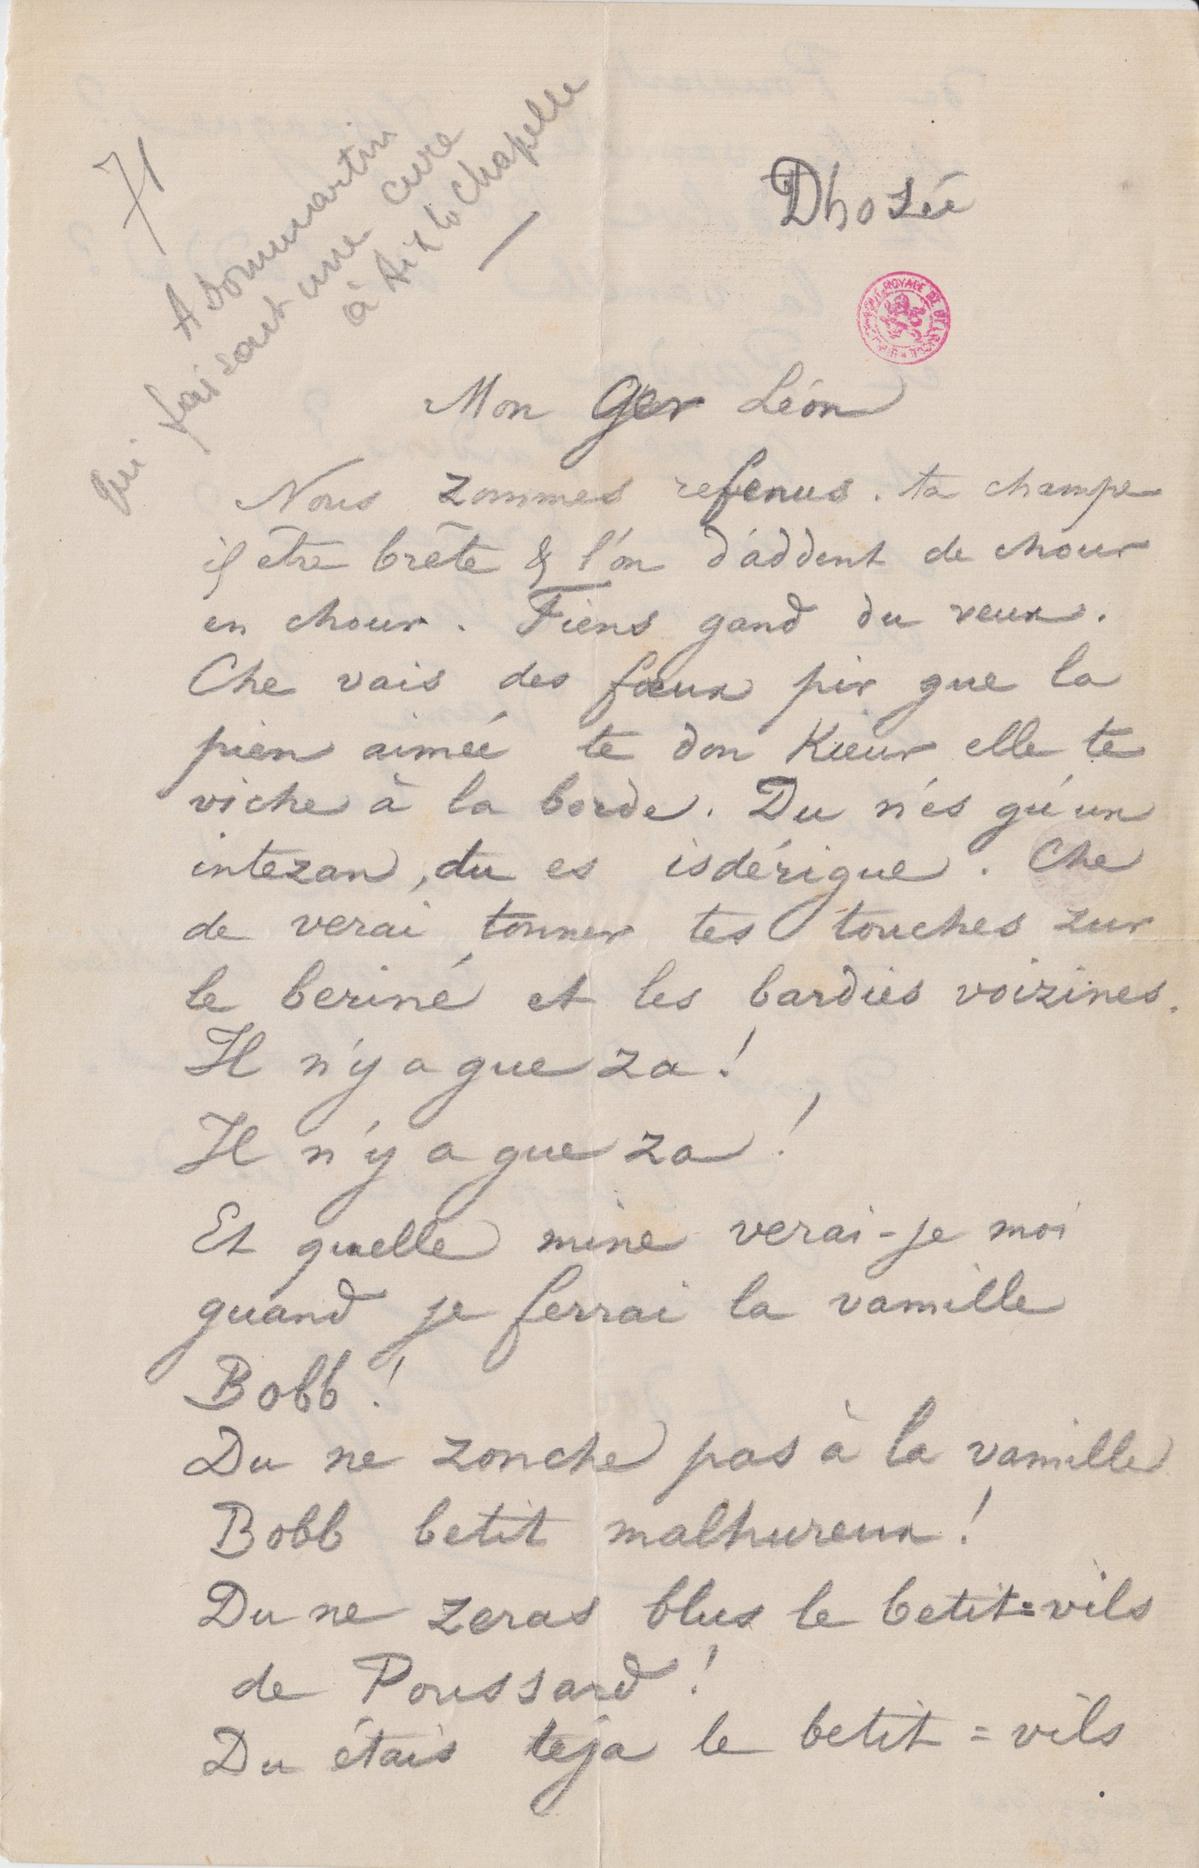 71
A Dommartin
qui faisait une cure
à Aix la Chapelle
Dhozée
Mon Ger Léon
Nous zommes refenus. ta champe
if être brête & l'on d'addent de chour
en chour. Fiens gand du veux.
Che vais des fœux pir gue la
pien aimée te don Kœur elle te
viche à la borde. Du n'es gu'un
intezan, du es isdérigue. Che
de verai tonner tes touches zur
le beriné et les bardies voizines.
Il n'y a gue za!
Il n'y a gue za!
Et quelle mine verai-je moi
quand je ferrai la vamille
Bobb!
Du ne zonche pas à la vamille
Bobb betit malhureux!
Du ne zeras blus le betit=vils
de Poussard!
Du étais teja le betit=vils